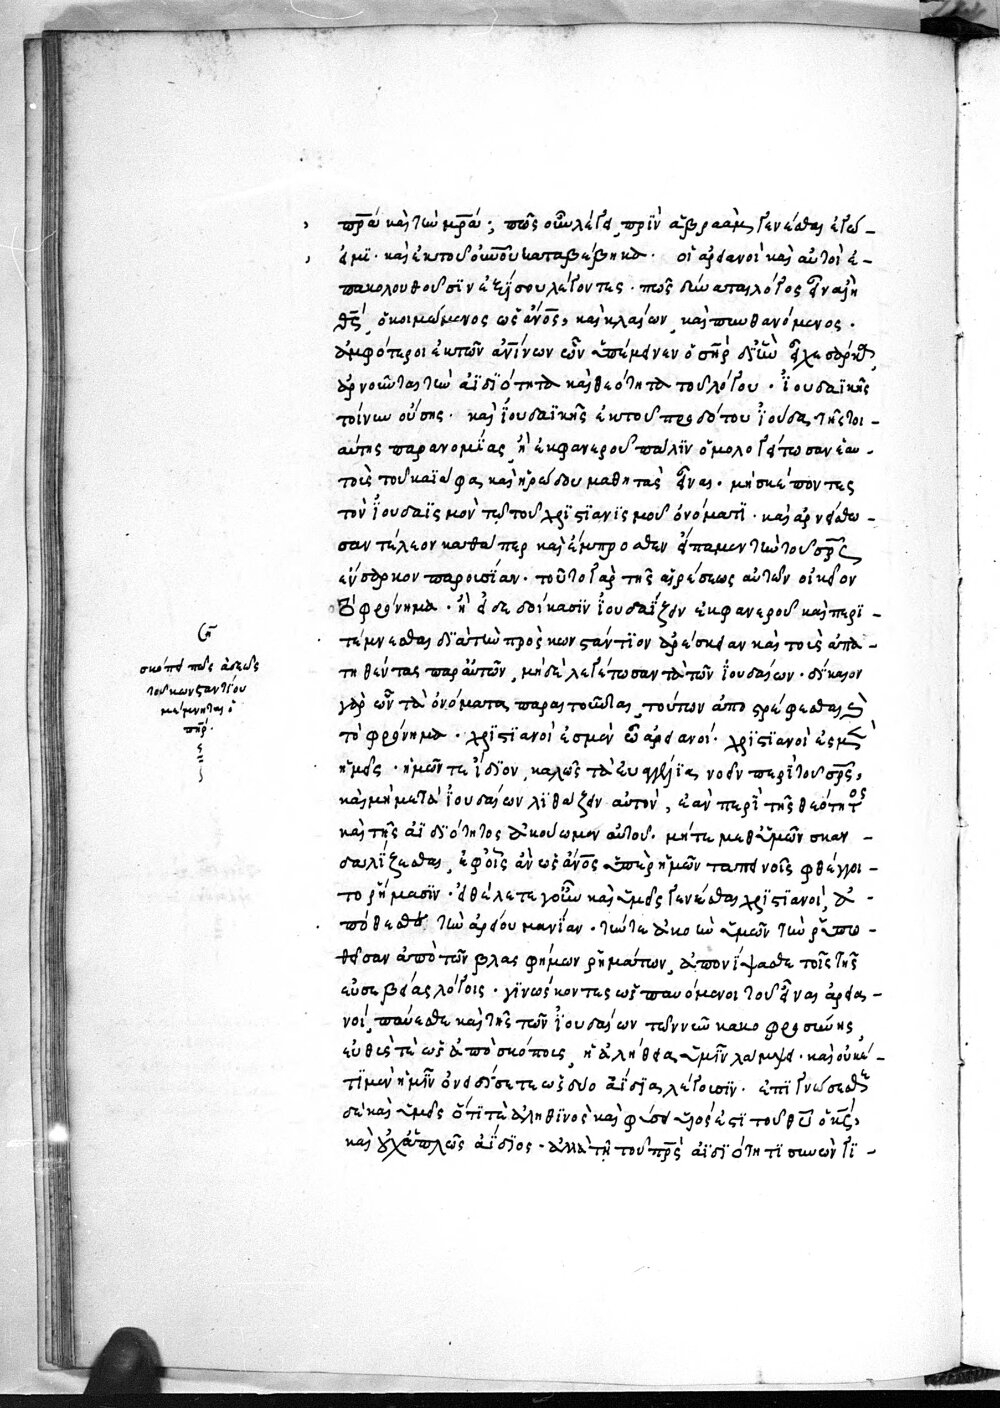 πρ̅α καὶ τὴν μρ̅α; πῶς οὖν λέγει, πρὶν ἀβραὰμ γενέσθαι ἐγώ -
εἰμὶ· καὶ ἐκ τοῦ οὐνοῦ καταβέβηκα· οἱ ἀρειανοὶ καὶ αὐτοὶ ἐ -
πακολουθοῦσιν ἐξίσου λέγοντες· πῶς δύναται λόγος εἶναι ἢ
θς̅, ὁ κοιμώμενος ὡς ἄνο̅ς, καὶ κλαίων, καὶ πυνθανόμενος·
ἀμφότεροι ἐκ τῶν ἀνίνων ὧν ὑπέμεινεν ὁ σηρ̅ δι' ἣν εἶχε σάρκα,
ἀρνοῦνται τὴν ἀϊδιότητα καὶ θεότητα τοῦ λόγου· ἰουδαϊκῆς
τοίνυν οὔσης· καὶ ἰουδαϊκῆς ἐκ τοῦ προδότου ἰούδα, τῆς τοι -
αύτης παρανομίας, ἢ ἐκ φανεροῦ πάλιν ὁμολογείτωσαν ἑαυ -
τοὺς τοῦ καϊάφα, καὶ ἡρώδου μαθητὰς εἶναι· μὴ σκέποντες
τὸν ἰουδαϊσμὸν τῷ τοῦ χριστιανισμοῦ ὀνόματι· καὶ ἀρνείσθω -
σαν τέλεον καθάπερ καὶ ἔμπροσθεν εἴπαμεν τὴν τοῦ σρ̅ς
ἔνσαρκον παρουσίαν· τοῦτο γὰρ τῆς αἱρέσεως αὐτῶν οἰκεῖον
τὸ φρόνημα· ἢ εἰ δεδοίκασιν ἰουδαΐζειν ἐκ φανεροῦ καὶ περι -
τέμνεσθαι διὰ τὴν πρὸς κωνστάντιον ἀρέσκειαν καὶ τοὺς ἀπα -
τηθέντας παρ' αὐτῶν, μὴ δὲ λεγέτωσαν τὰ τῶν ἰουδαίων· δίκαιον
γὰρ ὧν τὰ ὀνόματα παραιτοῦνται, τούτων ἀποστρέφεσθαι καὶ
τὸ φρόνημα· χριστιανοὶ ἐσμὲν ὦ ἀρειανοὶ· χριστιανοὶ ἐσμὲν
ἡμεῖς· ἡμῶν τε ἴδιον, καλῶς τὰ εὐαγγέλια νοεῖν περὶ τοῦ σρ̅ς,
καὶ μὴ μετὰ ἰουδαίων λιθάζειν αὐτὸν, ἐὰν περὶ τῆς θεότητος
καὶ τῆς ἀϊδιότητος ἀκούωμεν αὐτοῦ· μήτε μεθ' ὑμῶν σκαν -
δαλίζεσθαι, ἐφ' οἷς ἂν ὡς ἄνο̅ς ὑπὲρ ἡμῶν ταπεινοῖς φθέγγοι -
το ῥήμασιν· εἰ θέλετε γοῦν καὶ ὑμεῖς γενέσθαι χριστιανοὶ, ἀ -
πόθεσθε τὴν ἀρείου μανίαν· τήν τε ἀκοὴν ὑμῶν τὴν ῥυπω -
θεῖσαν ἀπὸ τῶν βλασφήμων ῥημάτων, ἀπονίψασθε τοῖς τῆς
εὐσεβείας λόγοις· γινώσκοντες ὡς παυόμενοι τοῦ εἶναι ἀρεια -
νοὶ, παύεσθε καὶ τῆς τῶν ἰουδαίων τῶν νῦν κακοφροσύνης,
εὐθύς τε ὡς ἀπὸ σκότους, ἡ ἀλήθεια ὑμῖν λάμψει· καὶ οὐκέ -
τι μὲν ἡμῖν ὀνειδίσετε ὡς δύο ἀΐδια λέγουσιν· ἐπιγνώσεσθε
δὲ καὶ ὑμεῖς ὅτι τε ἀληθινὸς καὶ φύσει υἱός ἐστι τοῦ θυ̅ ὁ κς̅,
καὶ οὐχ' ἁπλῶς ἀΐδιος· ἀλλὰ τῇ τοῦ πρς̅ ἀϊδιότητι συνὼν γι -
ση̅
σκόπει πῶς ἀσεβῶς
τοῦ κωνσταντίου
μέμνηται ὁ
πηρ̅·